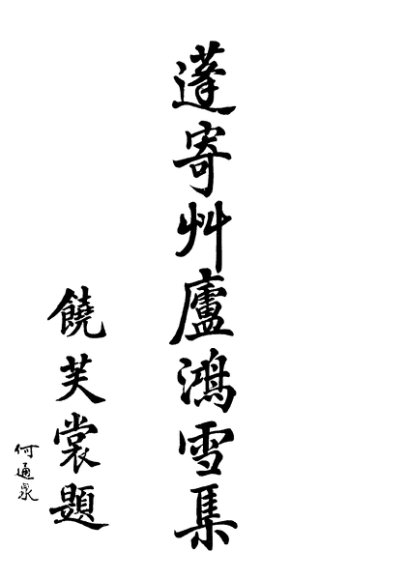 蓬寄艸廬鴻雪集
饒芙裳題
何通泉